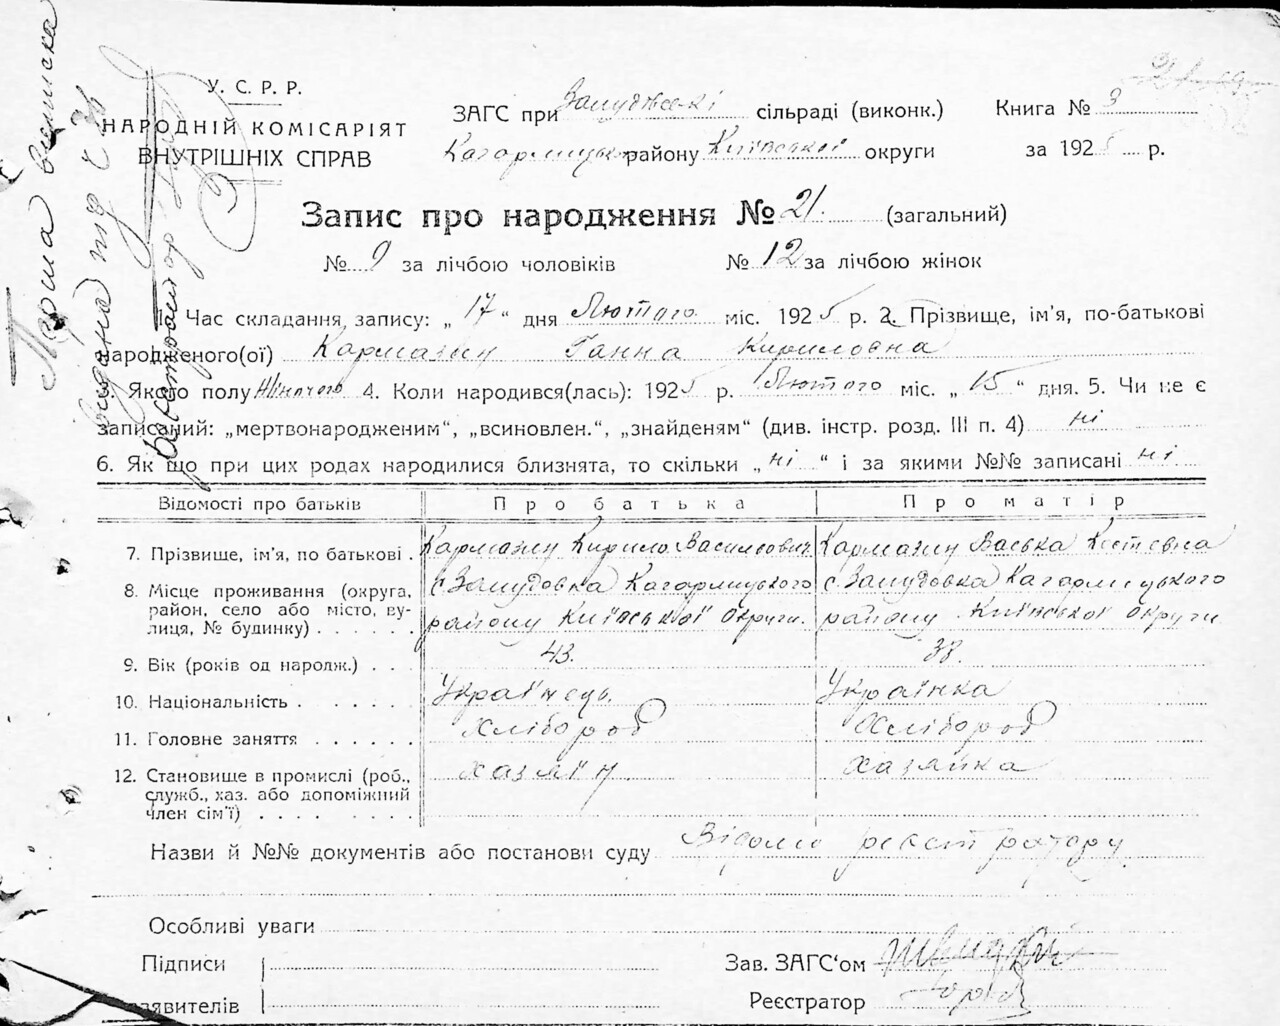 У. С. Р. Р.
НАРОДНІЙ КОМІСАРІЯТ
ВНУТРІШНІХ СПРАВ
ЗАГС при сільраді (виконк.) Книга № 3
Кагарлицьк району Київської округи за 1925 р.
Запис про народження № 21. (загальний)
№ 9 за лічбою чоловіків № 12 за лічбою жінок
1. Час складання запису: „17“ дня Лютого міс. 1925 р. 2. Прізвище, ім'я, по-батькові
народженого(ої) Кармазин Ганна Кириловна
3. Якого полу Жіночого 4. Коли народився(лась): 1925 р. Лютого міс. „15“ дня. 5. Чи не є
записаний: „мертвонародженим“, „всиновлен.“, „знайденям“ (див. інстр. розд. III п. 4) ні
6. Як що при цих родах народилися близнята, то скільки „ні“ і за якими №№ записані ні
Відомості про батьків Про батька Про матір
7. Прізвище, ім'я, по батькові . Кармазин Кирило Васильович Кармазин Васька
8. Місце проживання (округа, район, село або місто, вулиця, № будинку) . . . . . .
с. Кагарлицького с. Кагарлицького
району Київської округи. району Київської округи.
9. Вік (років од народж.) . . . 43. 38.
10. Національність . . . . . . Українець. Українка
11. Головне заняття . . . . . . Хлібороб Хлібороб
12. Становище в промислі (роб., хазяїн хазяйка
служб., хаз. або допоміжний
член сім'ї) . . . . . . . .
Назви й №№ документів або постанови суду Відомо реєстратору
Особливі уваги
Підписи
заявителів
Зав. ЗАГС'ом
Реєстратор
Перша виписка
видана
Реєстратор